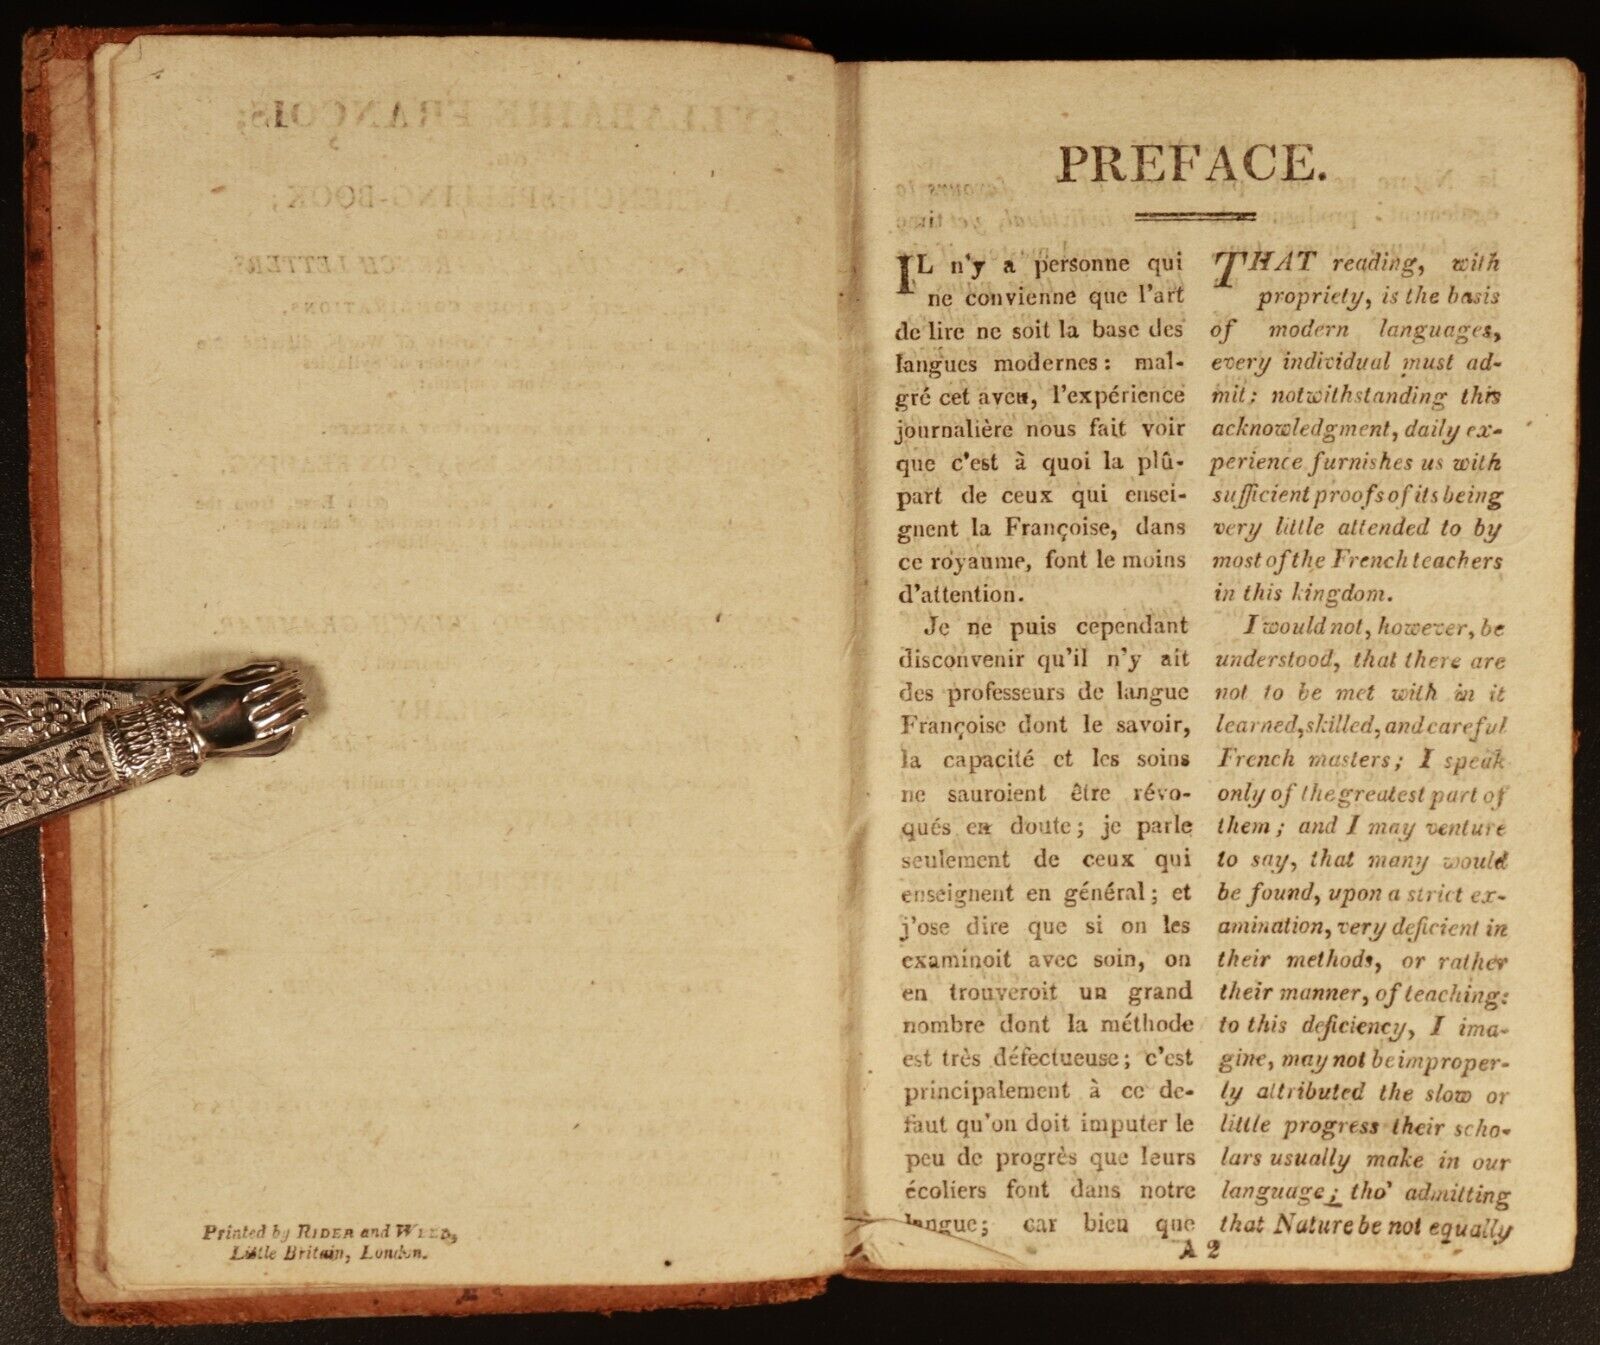 Printed by RIDER and WEED,
Little Britain, London.
PREFACE.
IL n'y a personne qui
ne convienne que l'art
de lire ne soit la base des
langues modernes: mal-
gré cet aveu, l'expérience
journalière nous fait voir
que c'est à quoi la plû-
part de ceux qui ensei-
gnent la Françoise, dans
ce royaume, font le moins
d'attention.
Je ne puis cependant
disconvenir qu'il n'y ait
des professeurs de langue
Françoise dont le savoir,
la capacité et les soins
ne sauroient être révo-
qués en doute; je parle
seulement de ceux qui
enseignent en général; et
j'ose dire que si on les
examinoit avec soin, on
en trouveroit un grand
nombre dont la méthode
est très défectueuse; c'est
principalement à ce de-
faut qu'on doit imputer le
peu de progrès que leurs
écoliers font dans notre
langue; car bien que
THAT reading, with
propriety, is the basis
of modern languages,
every individual must ad-
mit: notwithstanding this
acknowledgment, daily ex-
perience furnishes us with
sufficient proofs of its being
very little attended to by
most of the French teachers
in this kingdom.
I would not, however, be
understood, that there are
not to be met with in it
learned, skilled, and careful
French masters; I speak
only of the greatest part of
them; and I may venture
to say, that many would
be found, upon a strict ex-
amination, very deficient in
their methods, or rather
their manner, of teaching:
to this deficiency, I ima-
gine, may not be improper-
ly attributed the slow or
little progress their scho-
lars usually make in our
language; tho' admitting
that Nature be not equally
A 2